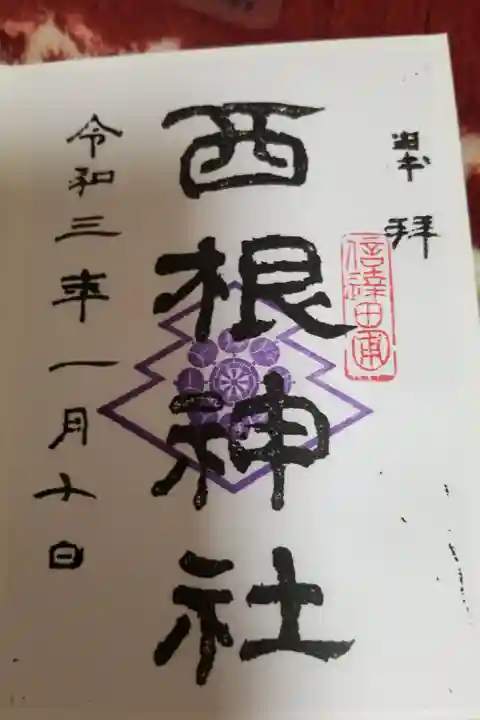 奉拝
信達田圃
西根神社
令和三年一月十日